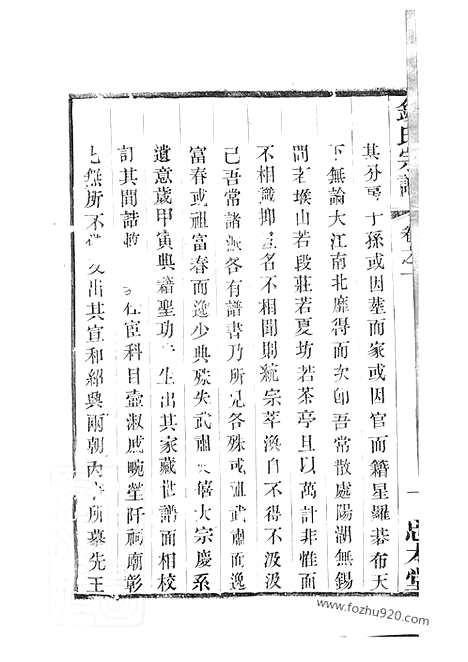 氏宗譜 卷之一
其分 子孫或因葬而家或因官而籍星羅棊布天
下無論大江南北靡得而次即吾常散處陽湖無錫
間若堠山若段莊若夏坊若茶亭且以萬計非惟面
不相識抑 名不相聞則統宗萃渙自不得不汲汲
已吾常諸派各有譜書乃所見各殊或祖武肅而逸
富春或祖富春而逸少典殊失武肅 大宗慶系
遺意歲甲寅典籍聖功 生出其家藏世譜面相校
訂其間誥敕 仕宦科目壼淑戚畹塋阡祠廟彰
無所不 出其宣和紹興兩朝內 所墓先王
一
思本堂
www.fozhu920.com